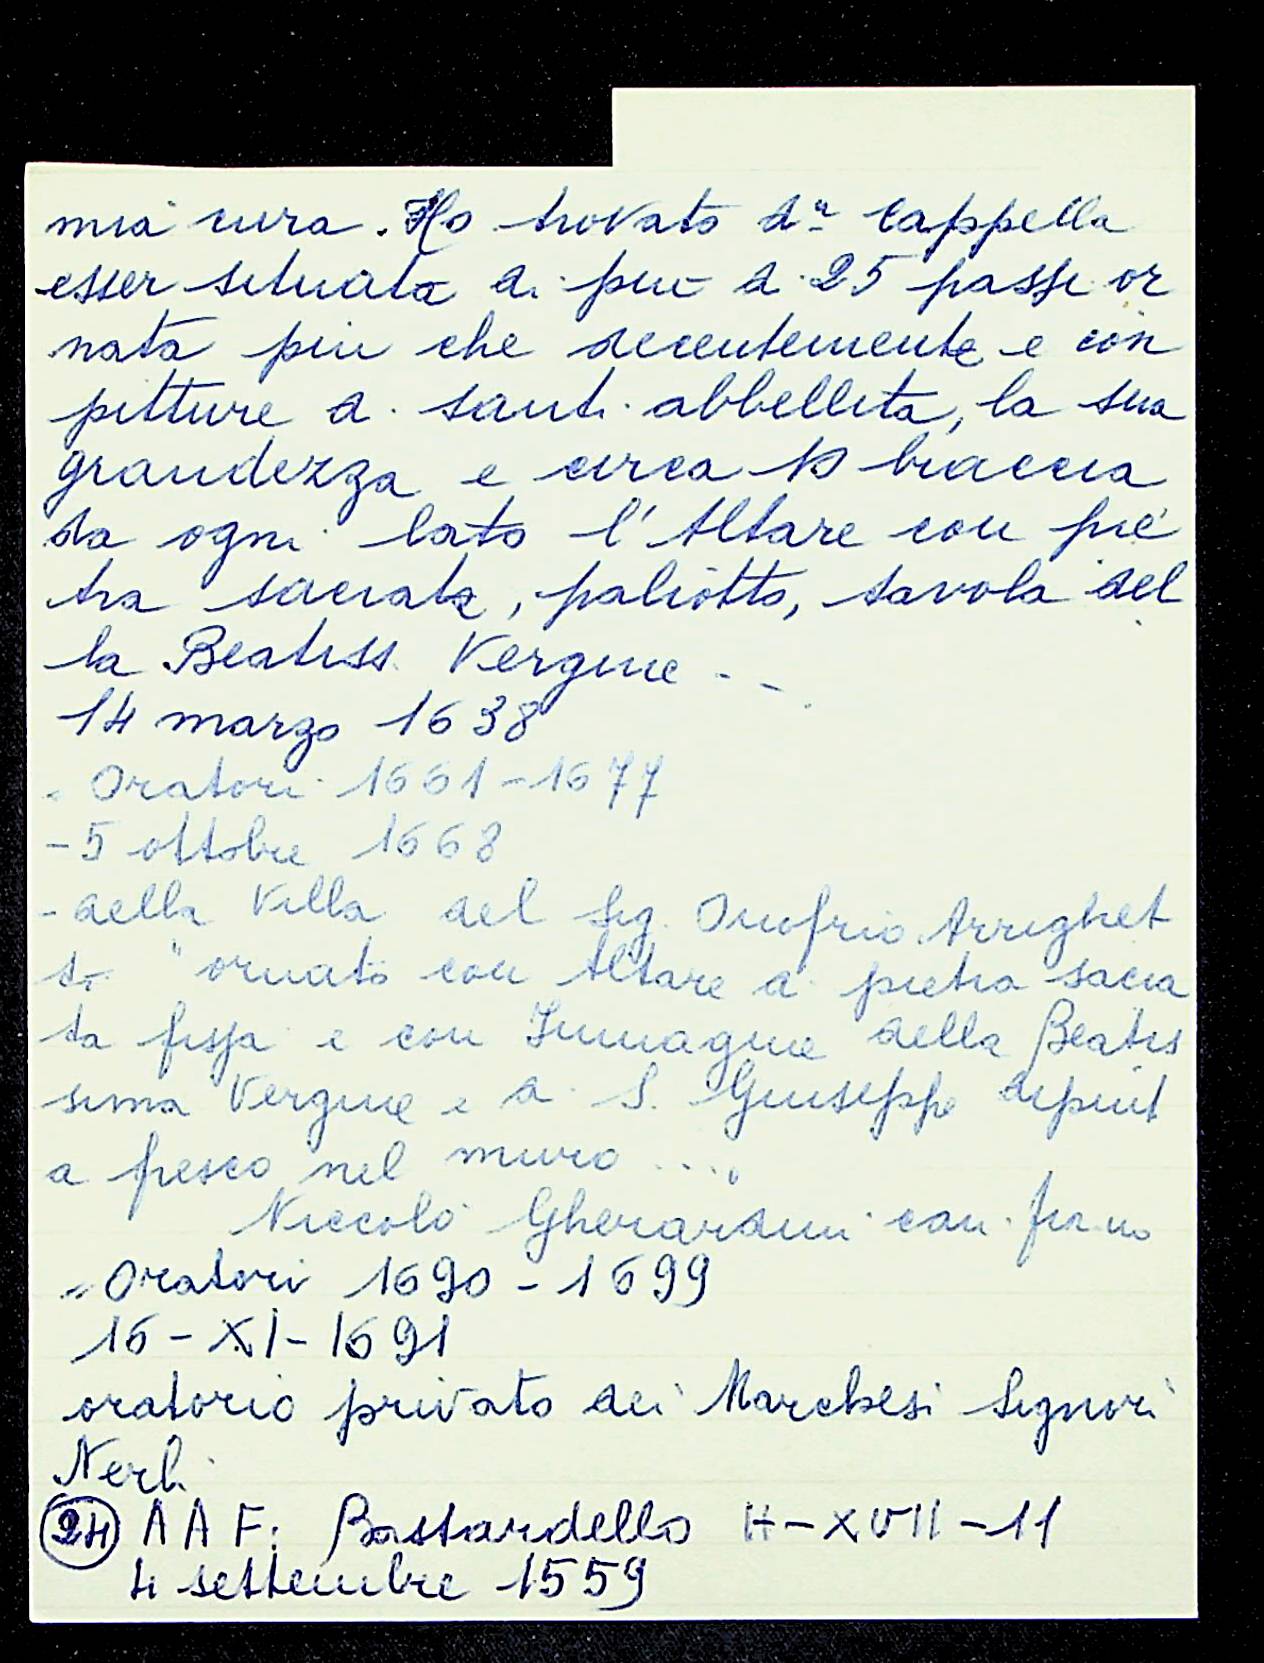 mia cura. Ho trovato da cappella
esser situata di più di 25 passi or
nata più che decentemente e con
pitture di santi abbellita, la sua
grandezza e circa 10 braccia
da ogni lato l'Altare con pie
tra sacrata, paliotto, tavola del
la Beatiss. Vergine . .
14 marzo 1638
" Oratori 1661-1677
- 5 ottobre 1668
- della Villa del Sig. Onofrio Arrighet
ti "ornato con Altare di pietra sacra
ta fissa e con Immagine della Beatis
sima Vergine e di S. Giuseppe dipint
a fresco nel muro ....
Niccolò Gherardini can. fi.no
" Oratori 1690-1699
16-XI-1691
oratorio privato dei Marchesi Signori
Nerli
24 A A F: Bastardello H-XVII-11
4 settembre 1559